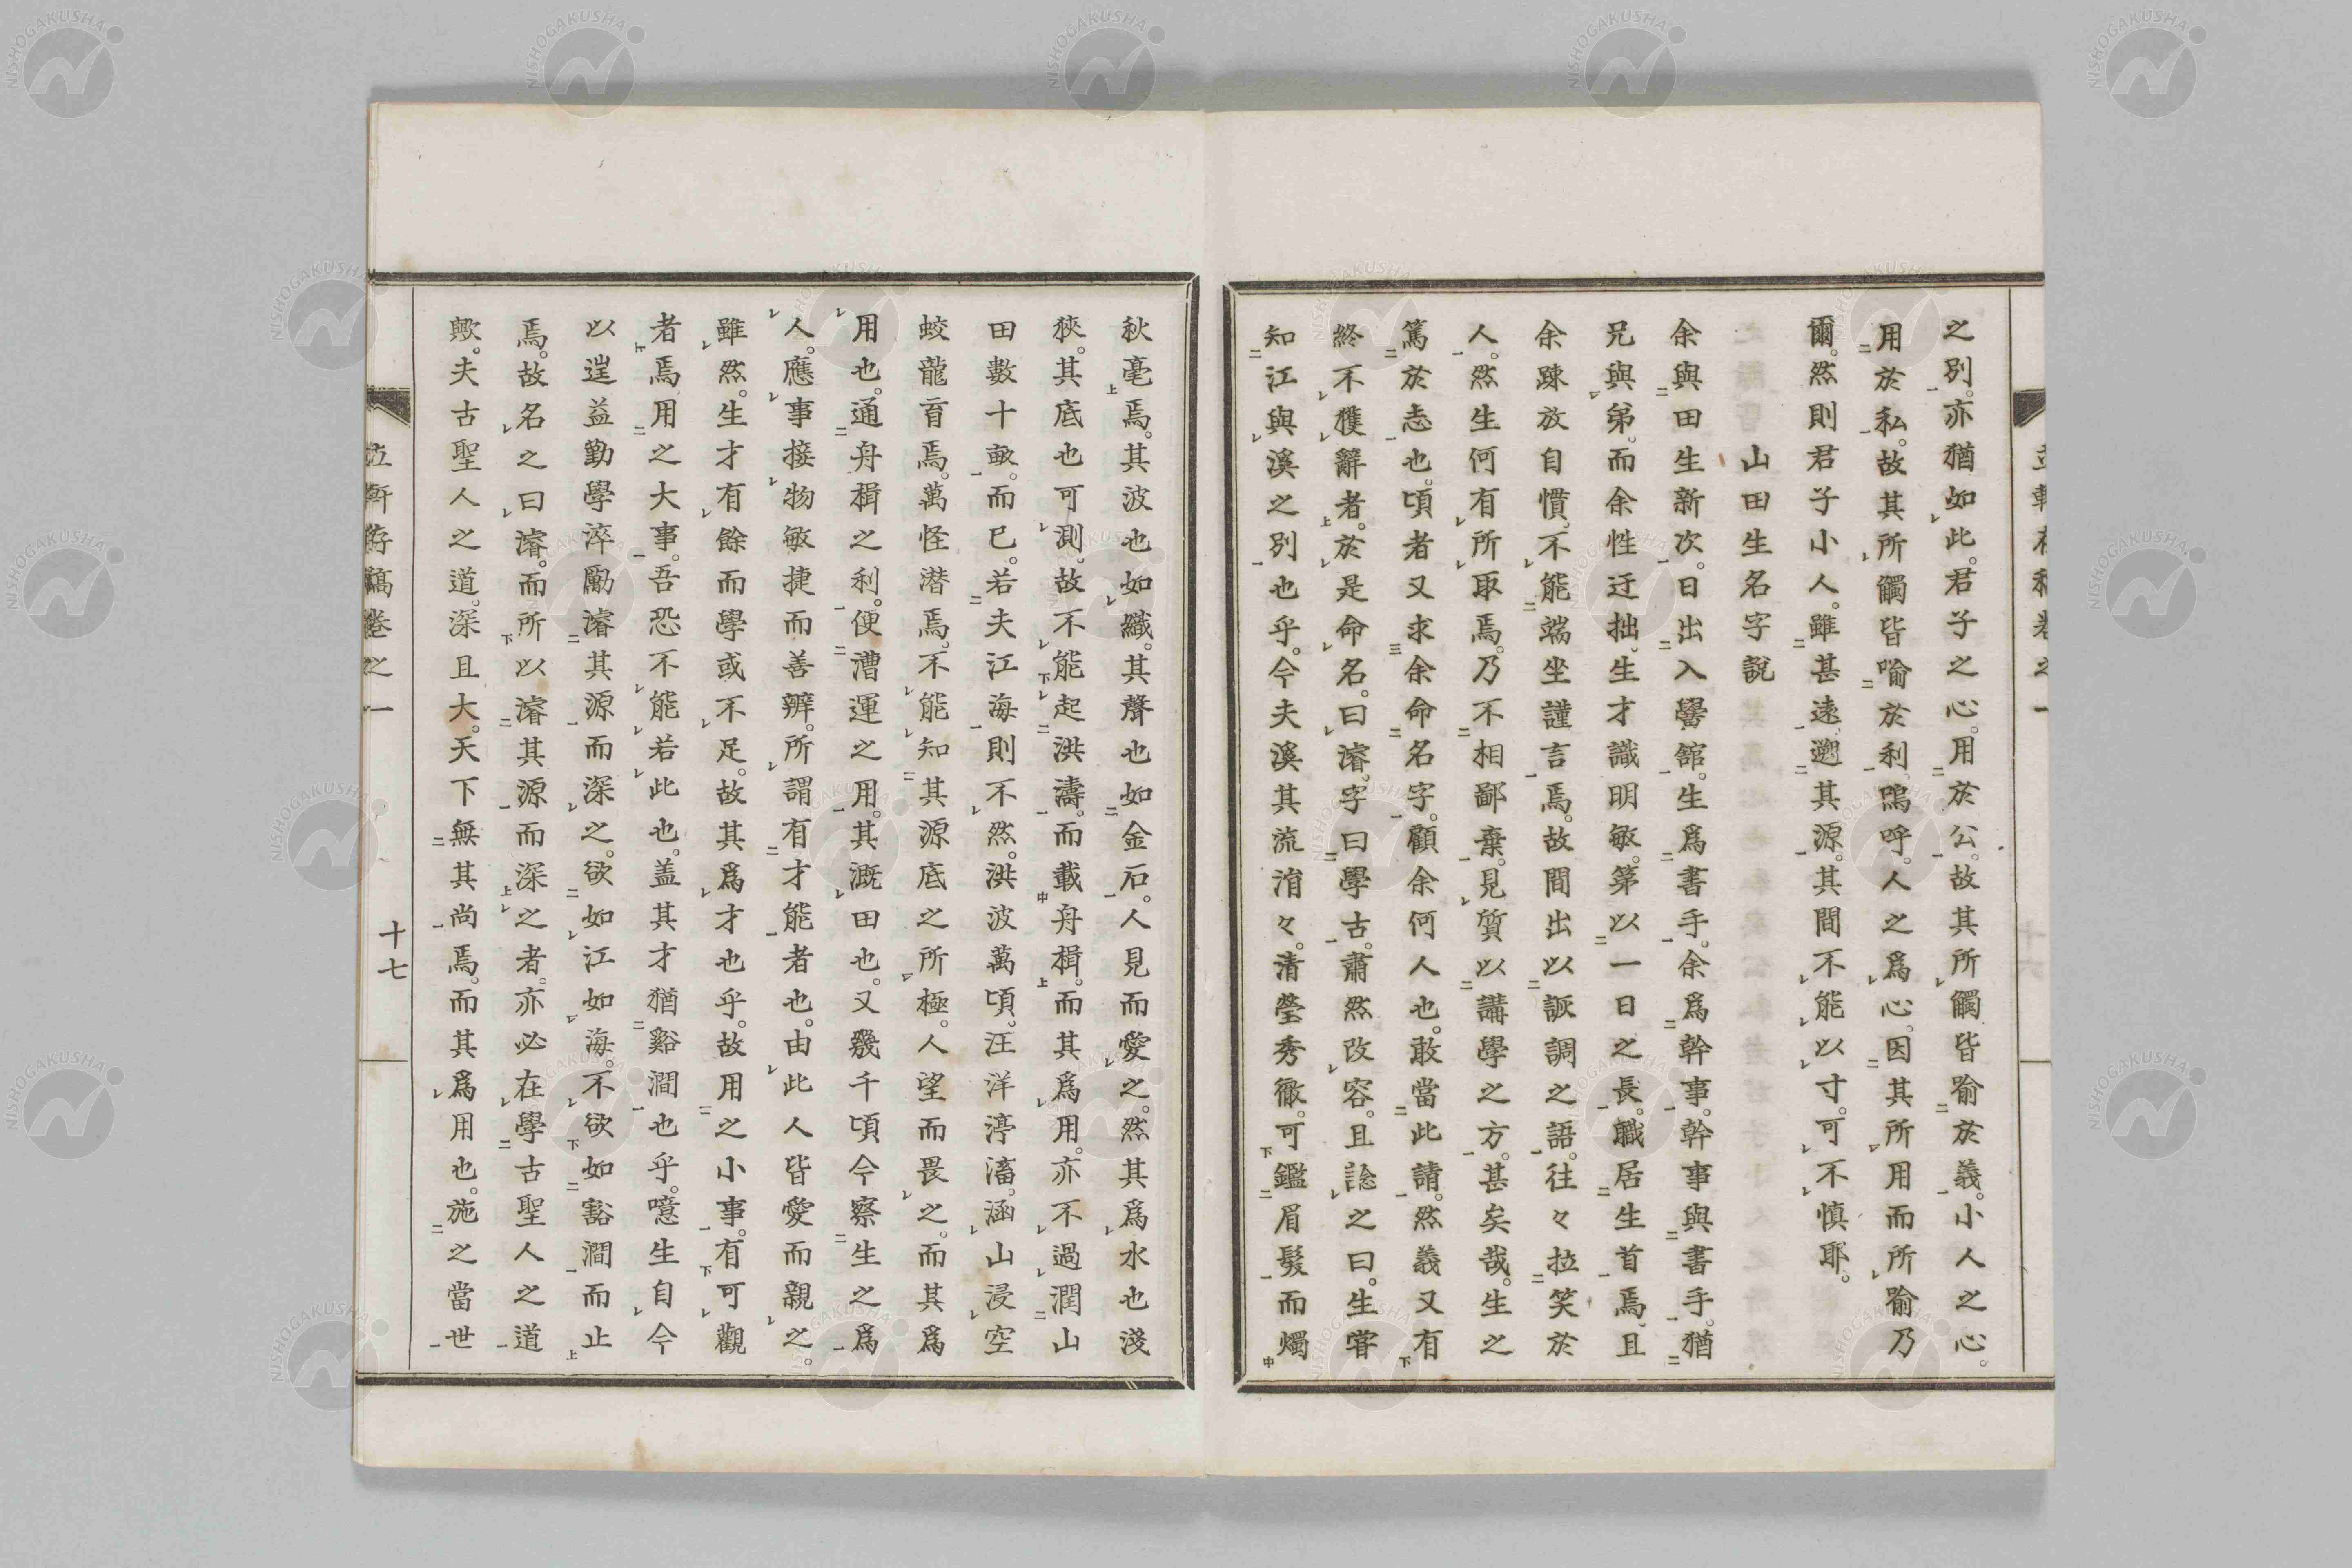 之別。亦猶如此。君子之心。用於公。故其所觸皆喩於義。小人之心。
用於私。故其所觸皆喩於利。嗚呼。人之爲心。因其所用而所喩乃
爾。然則君子小人。雖甚遠。遡其源。其間不能以寸。可不慎耶。
山田生名字說
余與田生新次。日出入黌舘。生爲書手。余爲幹事。幹事與書手。猶
兄與弟。而余性迂拙。生才識明敏。第以一日之長。職居生首焉。且
余踈放自慣。不能端坐謹言焉。故間出以詼調之語。往々拉笑於
人。然生何有所取焉。乃不相鄙棄。見質以講學之方。甚矣哉。生之
篤於志也。頃者又求余命名字。顧余何人也。敢當此請。然義又有
終不獲辭者。於是命名。曰濬。字曰學古。肅然改容。且諗之曰。生嘗
知江與溪之別也乎。今夫溪其流淯々。清瑩秀徹。可鑑眉髮而燭
秋毫焉。其波也如織。其聲也如金石。人見而愛之。然其爲水也淺
狹。其底也可測。故不能起洪濤。而載舟楫。而其爲用。亦不過潤山
田數十畝。而已。若夫江海則不然。洪波萬頃。汪洋渟滀。涵山浸空
蛟龍育焉。萬怪潜焉。不能知其源底之所極。人望而畏之。而其爲
用也。通舟楫之利。便漕運之用。其漑田也。又幾千頃今察生之爲
人。應事接物敏捷而善辨。所謂有才能者也。由此人皆愛而親之。
雖然。生才有餘而學或不足。故其爲才也乎。故用之小事。有可觀
者焉用之大事。吾恐不能若此也。盖其才猶谿澗也乎。噫生自今
以逞益勤學淬勵濬其源而深之。欲如江如海。不欲如谿澗而止
焉。故名之曰濬。而所以濬其源而深之者。亦必在學古聖人之道
歟。夫古聖人之道。深且大。天下無其尚焉。而其爲用也。施之當世
竝軒存稿卷之一
十七